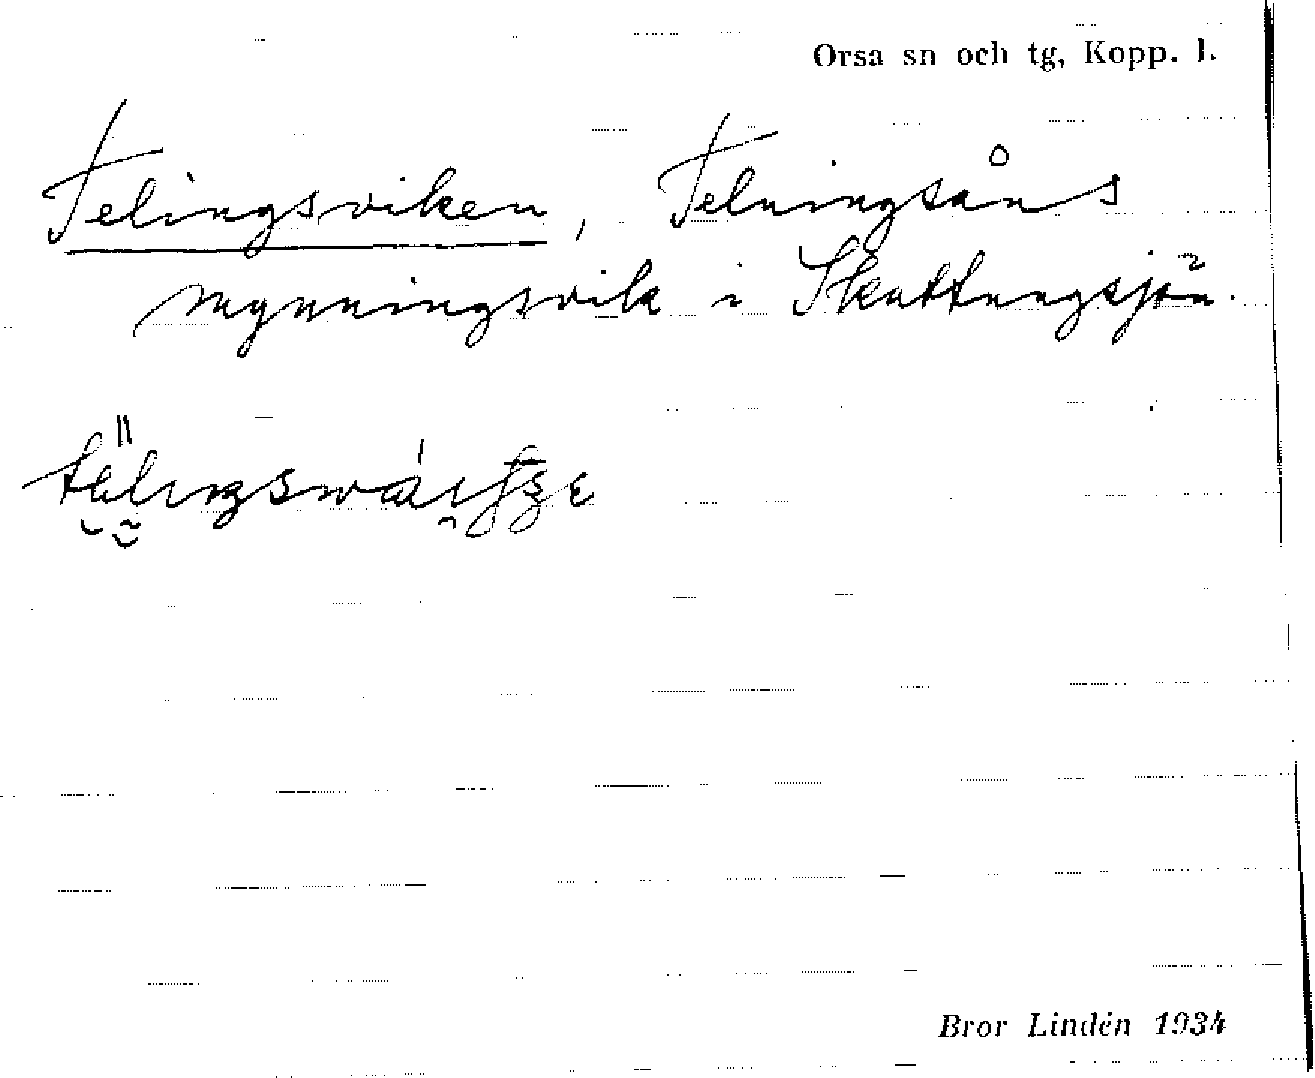 Orsa sn och tg, Kopp. l.
Telingsviken, Telningsåns
mynningsvik i Skattungsjön.
Bror Lindén 1934